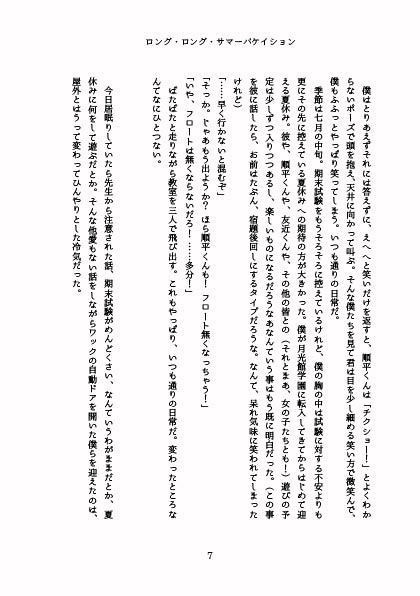 ロング・ロング・サマーバケイション
僕はとりあえずそれには答えずに、えへへと笑いだけを返すと、順平くんは「チクショー！」とよくわか
らないポーズで頭を抱え、天井に向かって叫ぶ。そんな僕たちを見て君は目を少し細める笑い方で微笑んで、
僕もふふっとやっぱり笑ってしまう。いつも通りの日常だ。
季節は七月の中旬。期末試験をもうそろそろに控えているけれど、僕の胸の中は試験に対する不安よりも
更にその先に控えている夏休みへの期待の方が大きかった。僕が月光館学園に転入してきてからはじめて迎
える夏休み。彼や、順平くんや、友近くんや、その他の皆との（それとまあ、女の子たちとも！）遊びの予
定は少しずつ入りつつあるし、楽しいものになるだろうなあなんていう事はもう既に明白だった。（この事
を彼に話したら、お前はたぶん、宿題後回しにするタイプだろうな。なんて、呆れ気味に笑われてしまった
けれど）
「……早く行かないと混むぞ」
「そっか。じゃあもう出ようか？ほら順平くんも！フロート無くなっちゃう！」
「いや、フロートは無くならないだろ！……多分！」
ぱたぱたと走りながら教室を三人で飛び出す。これもやっぱり、いつも通りの日常だ。変わったところな
んてなにひとつない。
今日居眠りしていたら先生から注意された話、期末試験がめんどくさい、なんていうわがままだとか、夏
休みに何をして遊ぶだとか。そんな他愛もない話をしながらワックの自動ドアを開いた僕らを迎えたのは、
屋外とはうって変わってひんやりとした冷気だった。
7